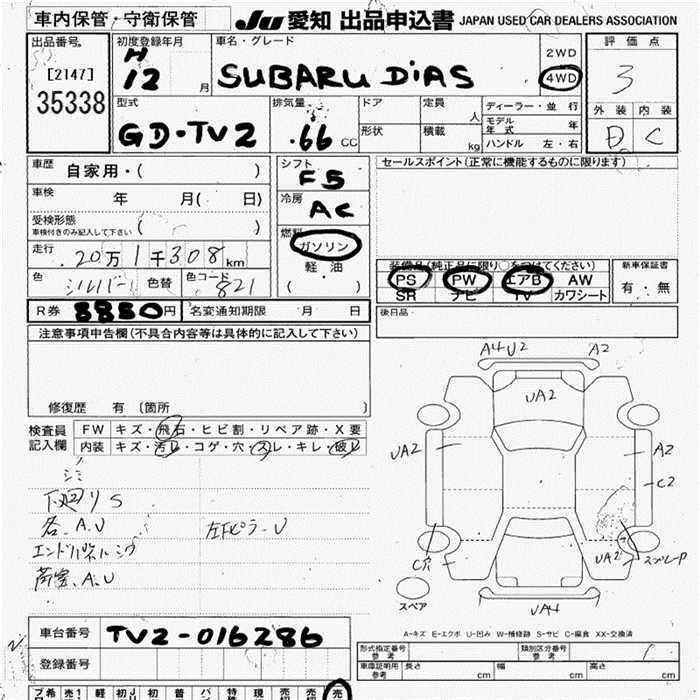 車内保管・守衛保管 JU 愛知 出品申込書 JAPAN USED CAR DEALERS ASSOCIATION
出品番号 初度登録年月 車名・グレード 評価点
[2147] H 2WD
35338 12 月 SUBARU DiAS 4WD 3
型式 排気量 ドア 定員 人 ディーラー・並行 外装 内装
GD-TV2 .66 CC 形状 積載 kg モデル年式 年 D C
ハンドル 左・右
車歴 自家用・( ) シフト F5 セールスポイント(正常に機能するものに限ります)
車検 年 月( 日) 冷房 AC
受検形態 ( )
車検付きのみ記入して下さい 燃料 ガソリン
走行 20万1千308km 軽・油 装備品(純正品に限り○をつけてください) 新車保証書
色 シルバー 色替 色コード 821 ( ・ ) PS PW エアB AW 有・無
SR ナビ TV カワシート
R券 8850円 名変通知期限 月 日 後日品
注意事項申告欄(不具合内容等は具体的に記入して下さい)
修復歴 有 〔箇所 〕
検査員 FW キズ・飛石・ヒビ割・リペア跡・X要
記入欄 内装 キズ・汚レ・コゲ・穴・スレ・キレ・破レ
シミ
下廻りS
各、A.U 左Fピラ-U
エンドパネル
荷室、A.U
A4U2 A2
UA2
UA2 A2
C2
C穴 UA2 スプレーP
スペア UA4
A-キズ E-エクボ U-凹み W-補修跡 S-サビ C-腐食 XX-交換済
車台番号 TV2-016286 形式指定番号 参考 類別区分番号 参考
登録番号 車庫証明用 参考 長さ cm 幅 cm 高さ cm